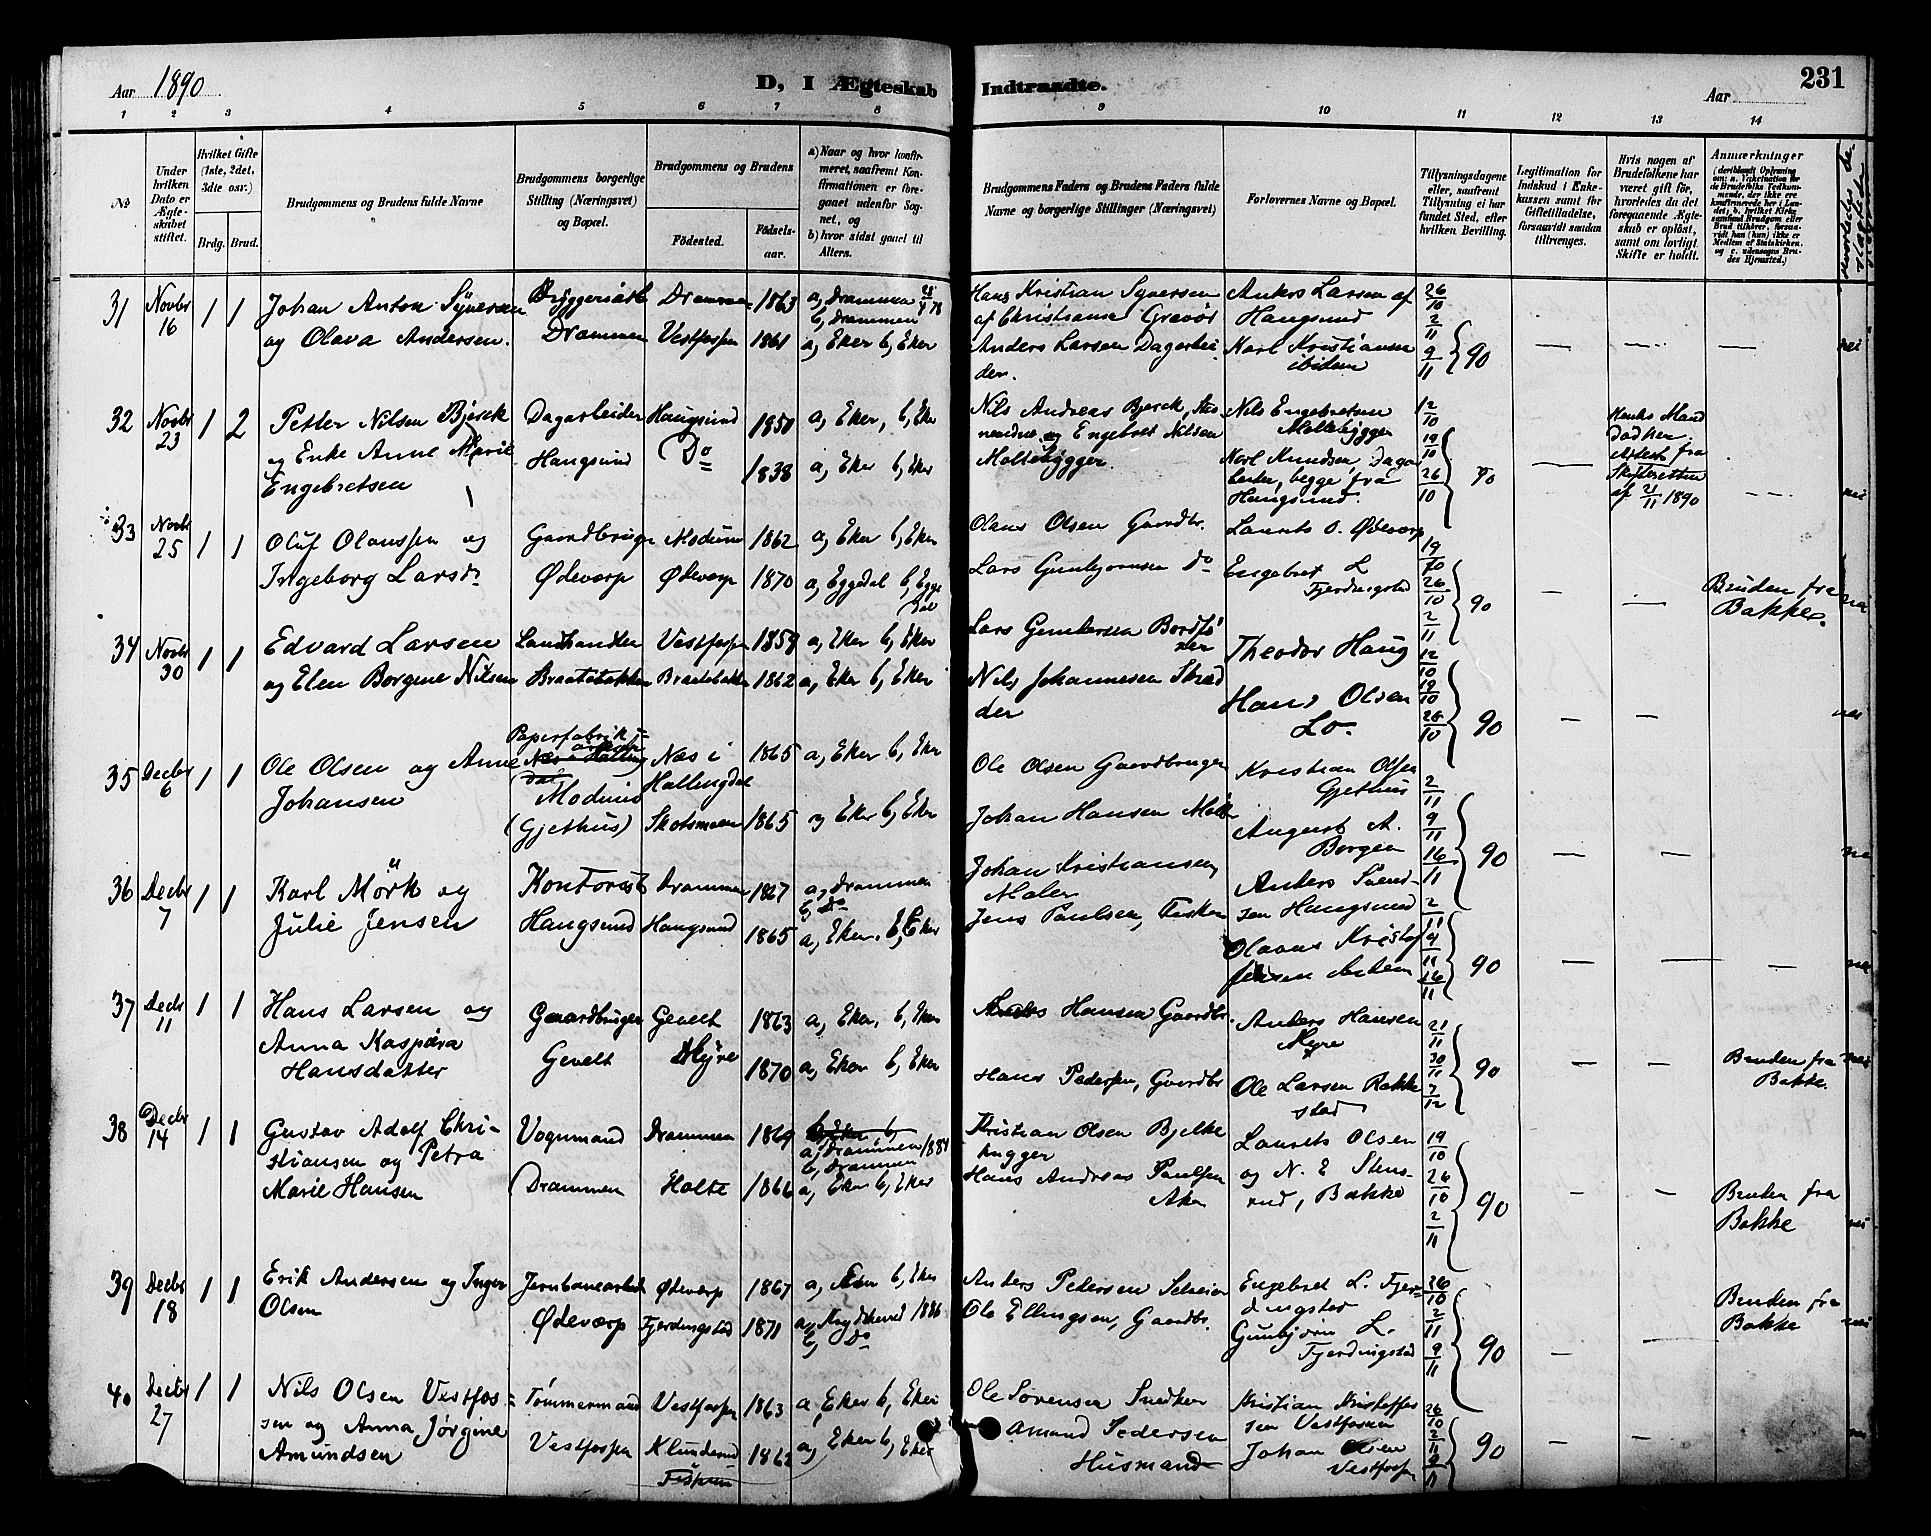 Aar 1890
D, I Ægteskab Indtraadte.
Aar
231
1 2 3 4 5 6 7 8 9 10 11 12 13 14
No
Under hvilken Dato er Ægteskabet stiftet.
Hvilket Gifte (1ste, 2det, 3die osv.)
Brdg. Brud.
Brudgommens og Brudens fulde Navne
Brudgommens borgerlige Stilling (Næringsvei) og Bopæl.
Brudgommens og Brudens
Fødested.
Fødselsaar.
a) Naar og hvor konfirmeret, saafremt Konfirmationen er foregaaet udenfor Sognet, og
b) hvor sidst gaaet til Alters.
Brudgommens Faders og Brudens Faders fulde Navne og borgerlige Stillinger (Næringsvei)
Forlovernes Navne og Bopæl.
Tillysningsdagene eller, saafremt Tillysning ei har fundet Sted, efter hvilken Bevilling.
Legitimation for Indskud i Enkekassen samt for Giftetilladelse, forsaavidt saadan tiltrænges.
Hvis nogen af Brudefolkene har været gift før, hvorledes da det foregaaende Ægteskab er opløst, samt om lovligt Skifte er holdt.
Anmærkninger
31 Novbr 16 1 1
Johan Anton Syversen
og Olava Andersen.
Drammen
Drammen 1863
Vestfossen 1861
a, Drammen
b, Drammen
a, Eker b, Eker
Hans Kristian Syversen
af Christiania
Anders Larsen Dagarbeider.
Anders Larsen af
Haugsund
Karl Kristiansen
ibidem
26/10 2/11 9/11 90
— — — nei
32 Novbr 23 1 2
Petter Nilsen Bjerck
og Enke Anne Marie
Engebretsen
Dagarbeider
Haugsund
Haugsund 1850
Do 1838
a, Eker, b, Eker
a, Eker b, Eker
Nils Andreas Bjerck,
og Engebret Nilsen
Møllebygger.
Nils Engebretsen
Møllebygger
Karl Knudsen, Dagarbeider, begge fra
Haugsund.
12/10 19/10 26/10 90
Enkes Mand
død her.
Attest fra
Skifteretten
af 21/11 1890
nei
33 Novbr 25 1 1
Oluf Olaussen og
Ingeborg Larsd.
Gaardbruger
Ødeværp
Modum 1862
Ødeværp 1870
a, Eker b, Eker
a, Eggedal b, Eggedal
Olaus Olsen Gaardbr.
Lars Gunbjornsen Do
Laurits O. Ødeværp
Engebret L
Fjerdingstad
19/10 26/10 2/11 90
Bruden fra
Bakke.
34 Novbr 30 1 1
Edvard Larsen
og Elen Borgine Nilsen
Landhandler
Braatebakken
Vestfossen 1859
Braatebakken 1862
a, Eker b, Eker
a, Eker b, Eker
Lars Gundersen
Nils Johannesen Skrædder
Theodor Haug
Hans Olsen
Lo.
12/10 19/10 26/10 90
nei
35 Decbr 6 1 1
Ole Olsen og Anne
Johansen
Papirfabrikarbeider
Næs i Hallingdal
Modum
(Gjethus)
Næs i
Hallingdal 1865
Skotsmoen 1865
a, Eker b, Eker
a, Eker b, Eker
Ole Olsen Gaardbruger
Johan Hansen
Kristian Olsen
Gjethus
August A.
Borgen
2/11 9/11 16/11 90
36 Decbr 7 1 1
Karl Mörk og
Julie Jensen
Kontorist
Haugsund
Drammen 1867
Haugsund 1865
a, Drammen
b, Do
a, Eker. b, Eker
Johan Kristiansen,
Maler
Jens Paulsen, Fisker
Anders Svendsen Haugsund
Olaves Kristofersen
2/11 9/11 16/11 90
37 Decbr 11 1 1
Hans Larsen og
Anna Kaspara
Hansdatter
Gaardbruger
Gevelt
Gevelt 1863
Myre 1870
a, Eker. b, Eker
a, Eker b, Eker
Hansen Gaardbr.
Hans Pedersen, Gaardbr
Anders Hansen
Myre
Ole Larsen Rakkestad
90
Bruden fra
Bakke.
nei
38 Decbr 14 1 1
Gustav Adolf Christiansen og Petra
Marie Hansen
Vognmand
Drammen
Drammen 1869
Holte 1866
a, Drammen 1884
b, Drammen
a, Eker b, Eker
Kristian Olsen Bjelkehugger
Hans Andreas Paulsen
Aker
Laurits Olsen
og N. E Stensrud, Bakke
19/10 26/10 2/11 90
Bruden fra
Bakke
nei
39 Decbr 18 1 1
Erik Andersen og Inger
Olsen
Jernbanearbeid
Ødeværp
Ødeværp 1867
Fjerdingstad 1871
a, Eker b, Eker
a, Krydsherred 1886
b, Do
Anders Pedersen
Ole Ellingsen, Gaardbr.
Engebret L. Fjerdingstad
Gunbjörn L.
Fjerdingstad
26/10 2/11 9/11 90
Bruden fra
Bakke
nei
40 Decbr 27 1 1
Nils Olsen Vestfossen og Anna Jørgine
Amundsen
Tømmermand
Vestfossen
Vestfossen 1863
Klunderud 1862
a, Eker b, Eker
a, Eker b, Eker
Ole Sørensen Snedker
Amund Pedersen
Husmand
Kristian Kristoffersen Vestfossen
Johan Olsen
Vestfossen
26/10 2/11 9/11 90